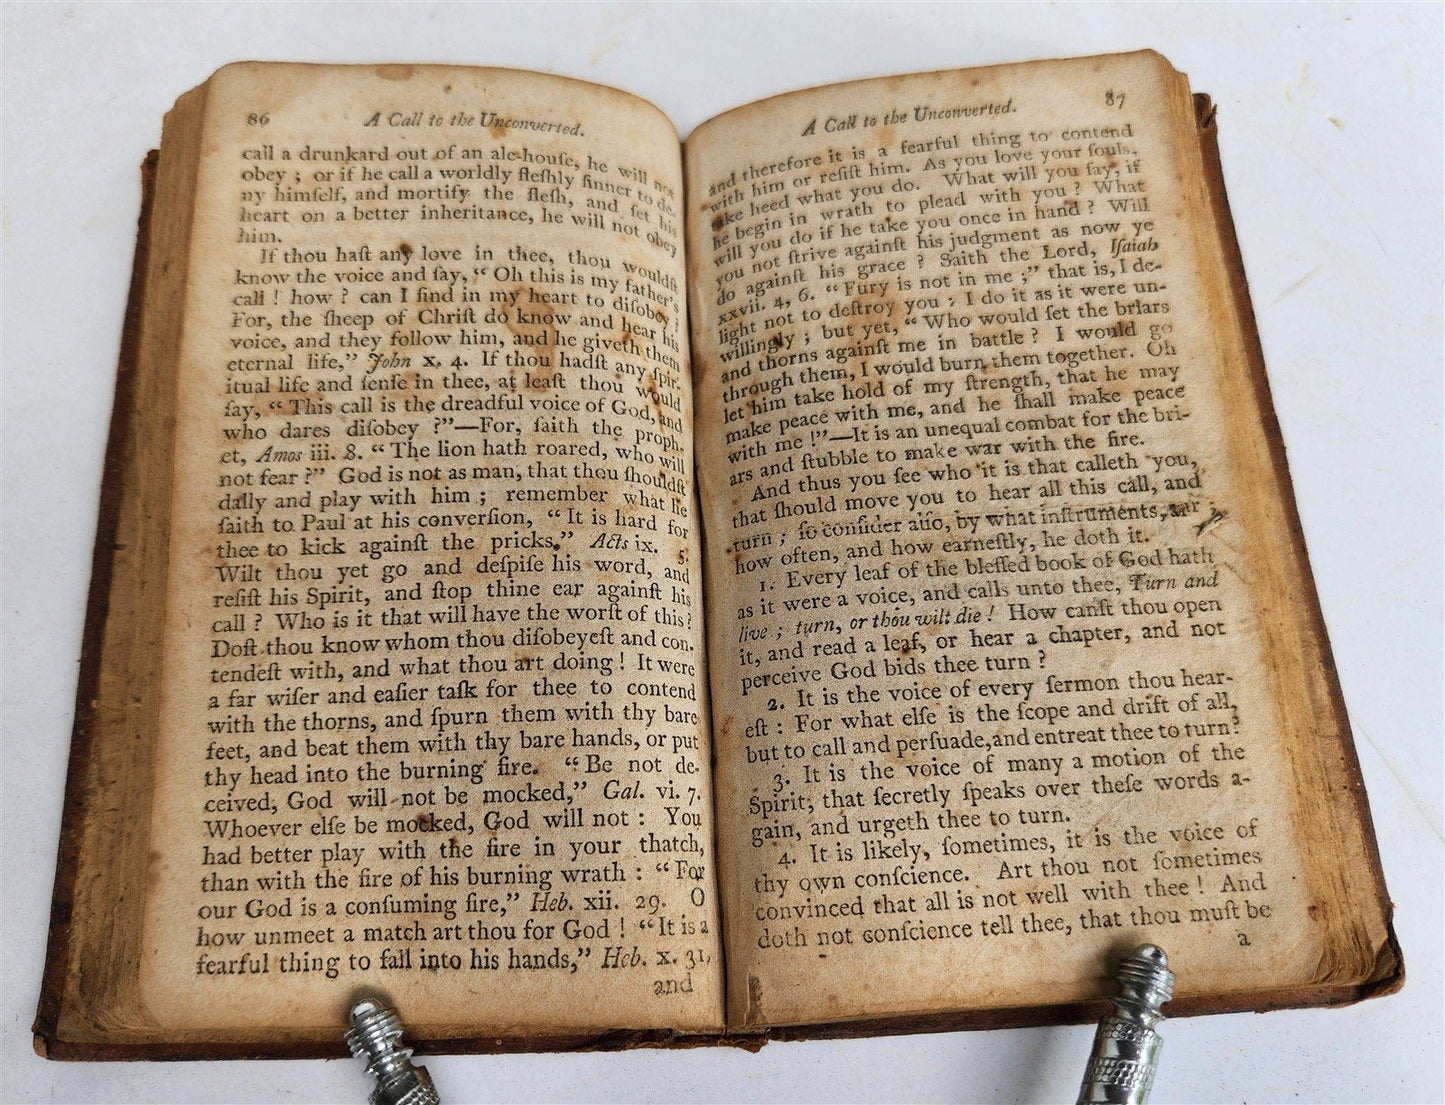 86
A Call to the Unconverted.
call a drunkard out of an ale-houſe, he will not
obey ; or if he call a worldly fleſhly ſinner to de-
ny himſelf, and mortify the fleſh, and ſet his
heart on a better inheritance, he will not obey
him.
If thou haſt any love in thee, thou wouldſt
know the voice and ſay, “ Oh this is my father's
call ! how ? can I find in my heart to diſobey ?
For, the ſheep of Chriſt do know and hear his
voice, and they follow him, and he giveth them
eternal life,” John x. 4. If thou hadſt any ſpir-
itual life and ſenſe in thee, at leaſt thou would
ſay, “ This call is the dreadful voice of God, and
who dares diſobey ?”—For, ſaith the proph-
et, Amos iii. 8. “ The lion hath roared, who will
not fear ?” God is not as man, that thou ſhouldſt
dally and play with him ; remember what he
ſaith to Paul at his converſion, “ It is hard for
thee to kick againſt the pricks,” Acts ix. 5.
Wilt thou yet go and deſpiſe his word, and
reſiſt his Spirit, and ſtop thine ear againſt his
call ? Who is it that will have the worſt of this ?
Doſt thou know whom thou diſobeyeſt and con-
tendeſt with, and what thou art doing ! It were
a far wiſer and eaſier taſk for thee to contend
with the thorns, and ſpurn them with thy bare
feet, and beat them with thy bare hands, or put
thy head into the burning fire. “ Be not de-
ceived, God will not be mocked,” Gal. vi. 7.
Whoever elſe be mocked, God will not : You
had better play with the fire in your thatch,
than with the fire of his burning wrath : “ For
our God is a conſuming fire,” Heb. xii. 29. O
how unmeet a match art thou for God ! “ It is a
fearful thing to fall into his hands,” Heb. x. 31,
and
87
A Call to the Unconverted.
and therefore it is a fearful thing to contend
with him or reſiſt him. As you love your ſouls,
take heed what you do. What will you ſay, if
he begin in wrath to plead with you ? What
will you do if he take you once in hand ? Will
you not ſtrive againſt his judgment as now ye
do againſt his grace ? Saith the Lord, Iſaiah
xxvii. 4, 6. “ Fury is not in me ;” that is, I de-
light not to deſtroy you : I do it as it were un-
willingly ; but yet, “ Who would ſet the briars
and thorns againſt me in battle ? I would go
through them, I would burn them together. Oh
let him take hold of my ſtrength, that he may
make peace with me, and he ſhall make peace
with me !”—It is an unequal combat for the bri-
ars and ſtubble to make war with the fire.
And thus you ſee who it is that calleth you,
that ſhould move you to hear all this call, and
turn ; ſo conſider alſo, by what inſtruments, and
how often, and how earneſtly, he doth it.
1. Every leaf of the bleſſed book of God hath
as it were a voice, and calls unto thee, Turn and
live ; turn, or thou wilt die ! How canſt thou open
it, and read a leaf, or hear a chapter, and not
perceive God bids thee turn ?
2. It is the voice of every ſermon thou hear-
eſt : For what elſe is the ſcope and drift of all,
but to call and perſuade, and entreat thee to turn ?
3. It is the voice of many a motion of the
Spirit, that ſecretly ſpeaks over theſe words a-
gain, and urgeth thee to turn.
4. It is likely, ſometimes, it is the voice of
thy own conſcience. Art thou not ſometimes
convinced that all is not well with thee ! And
doth not conſcience tell thee, that thou muſt be
a